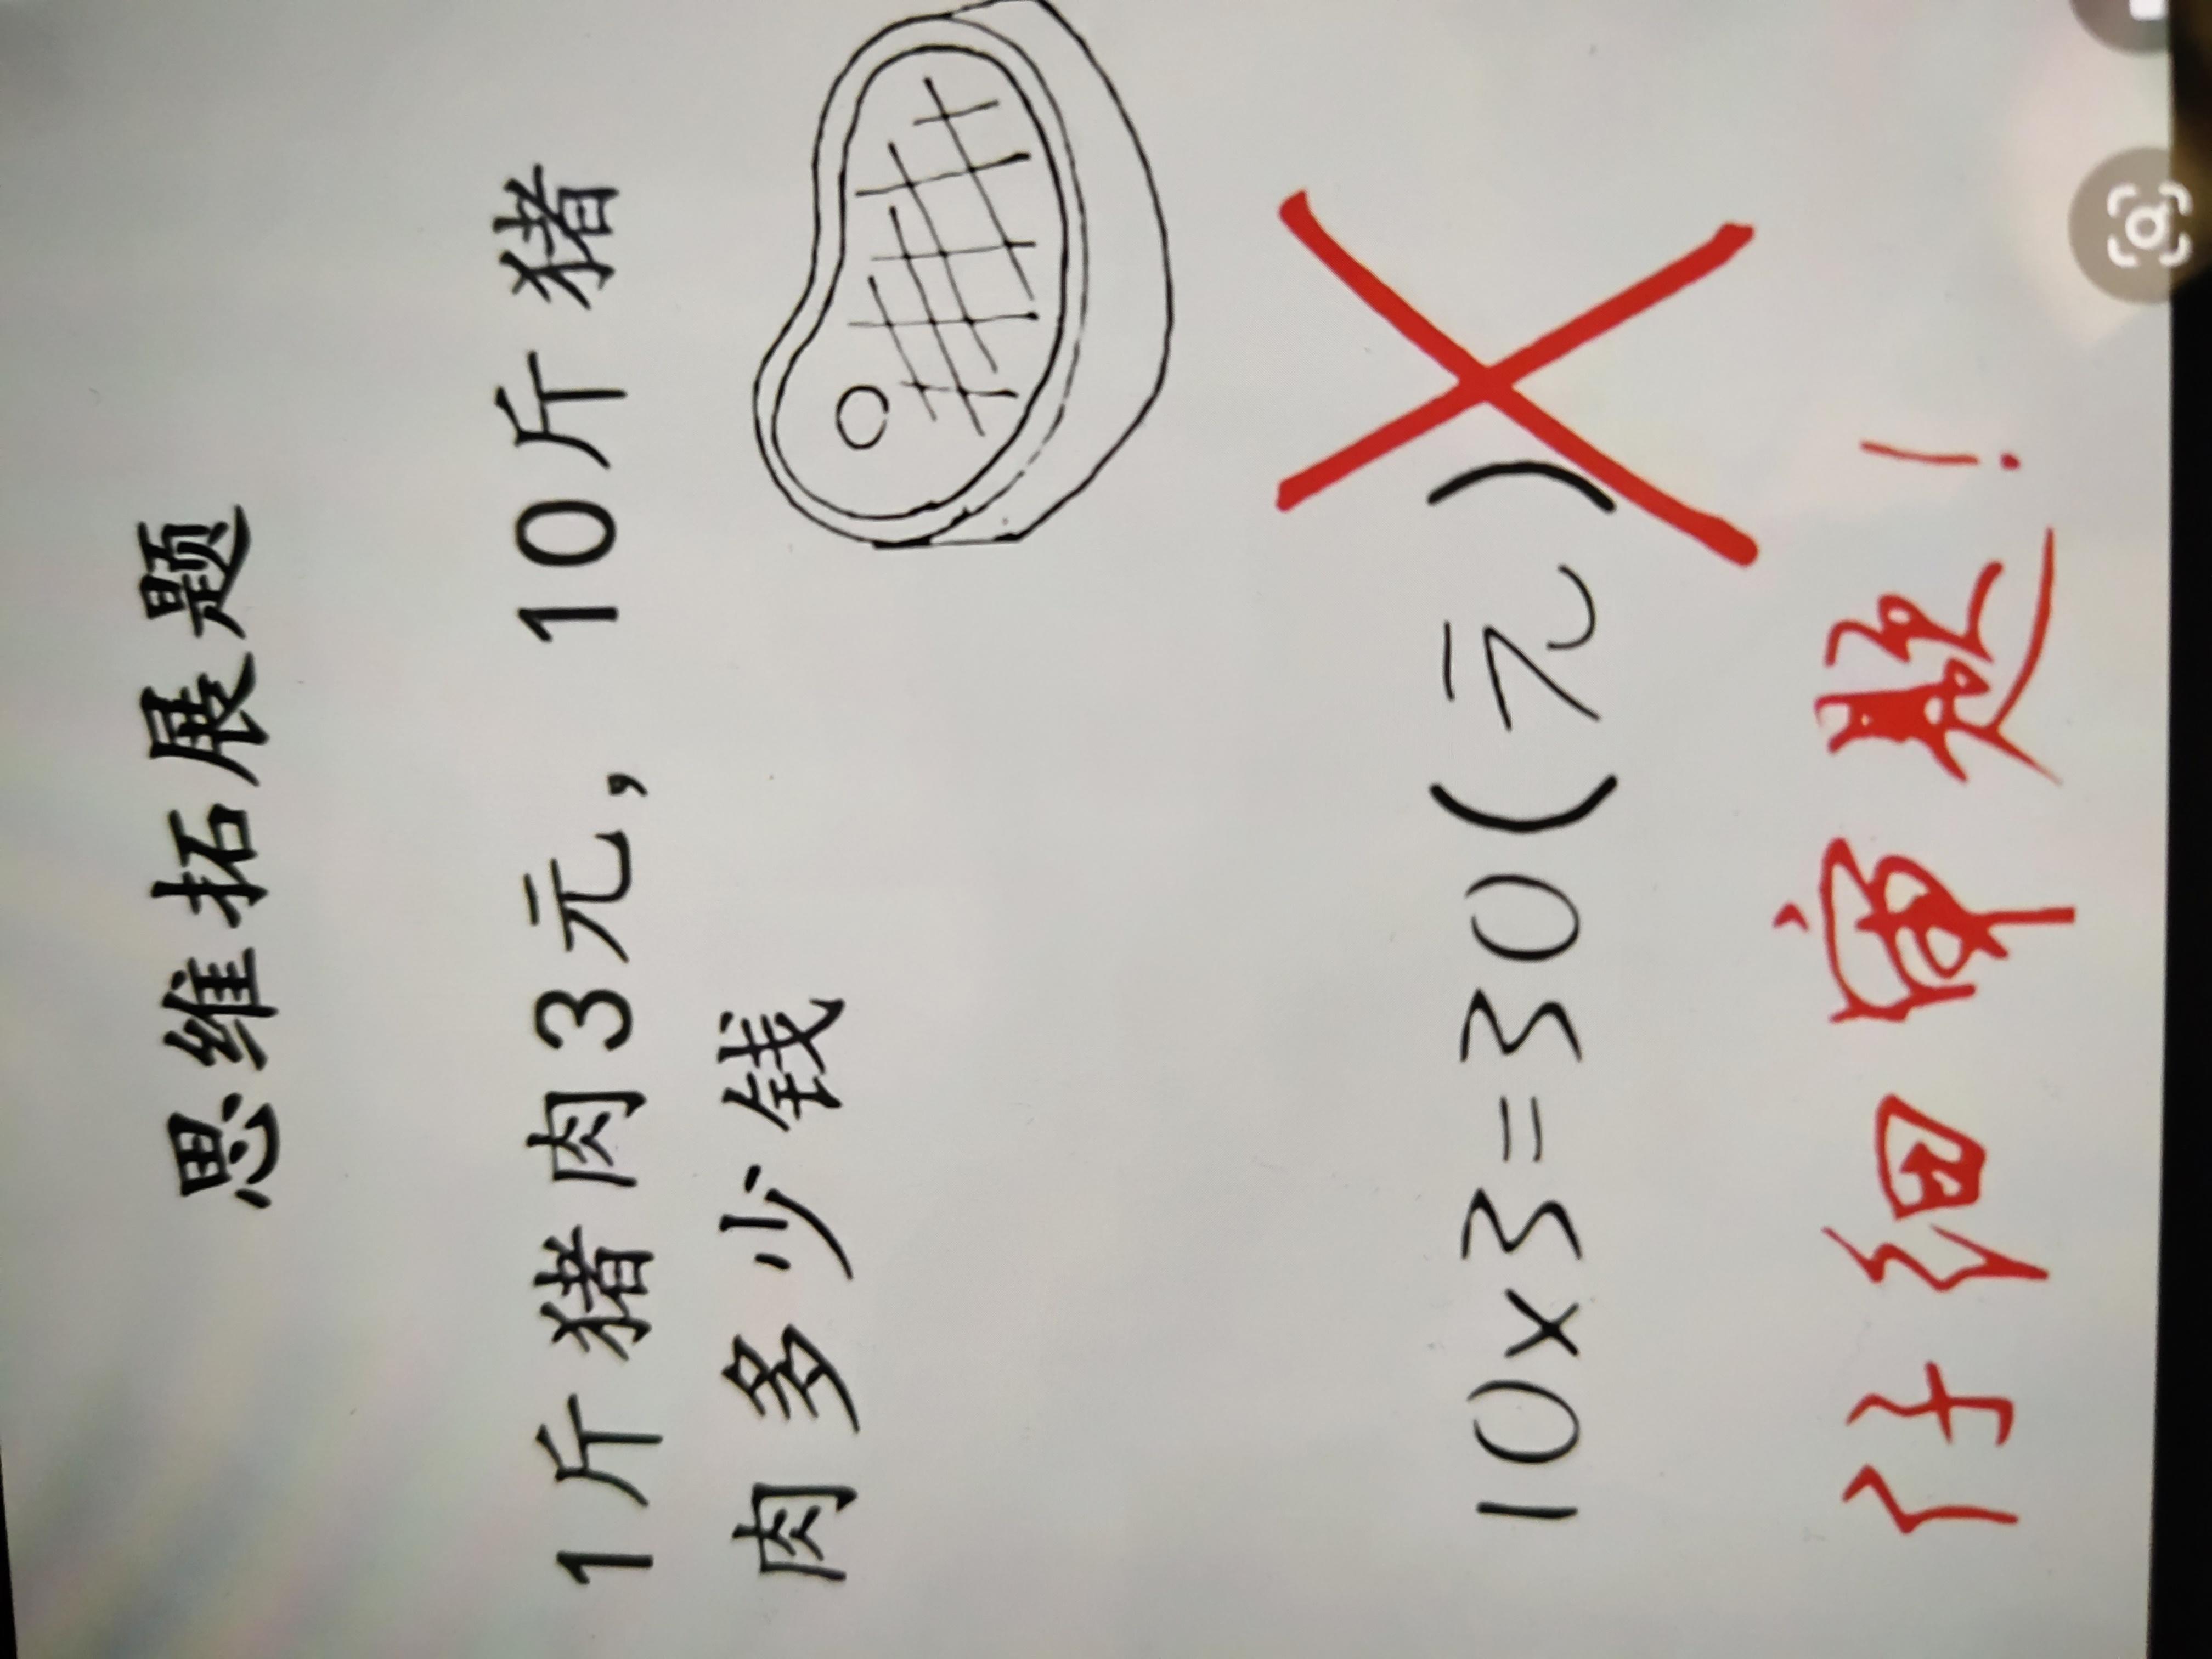 思维拓展题
1斤猪肉3元，10斤猪
肉多少钱
10×3=30(元)
仔细审题！